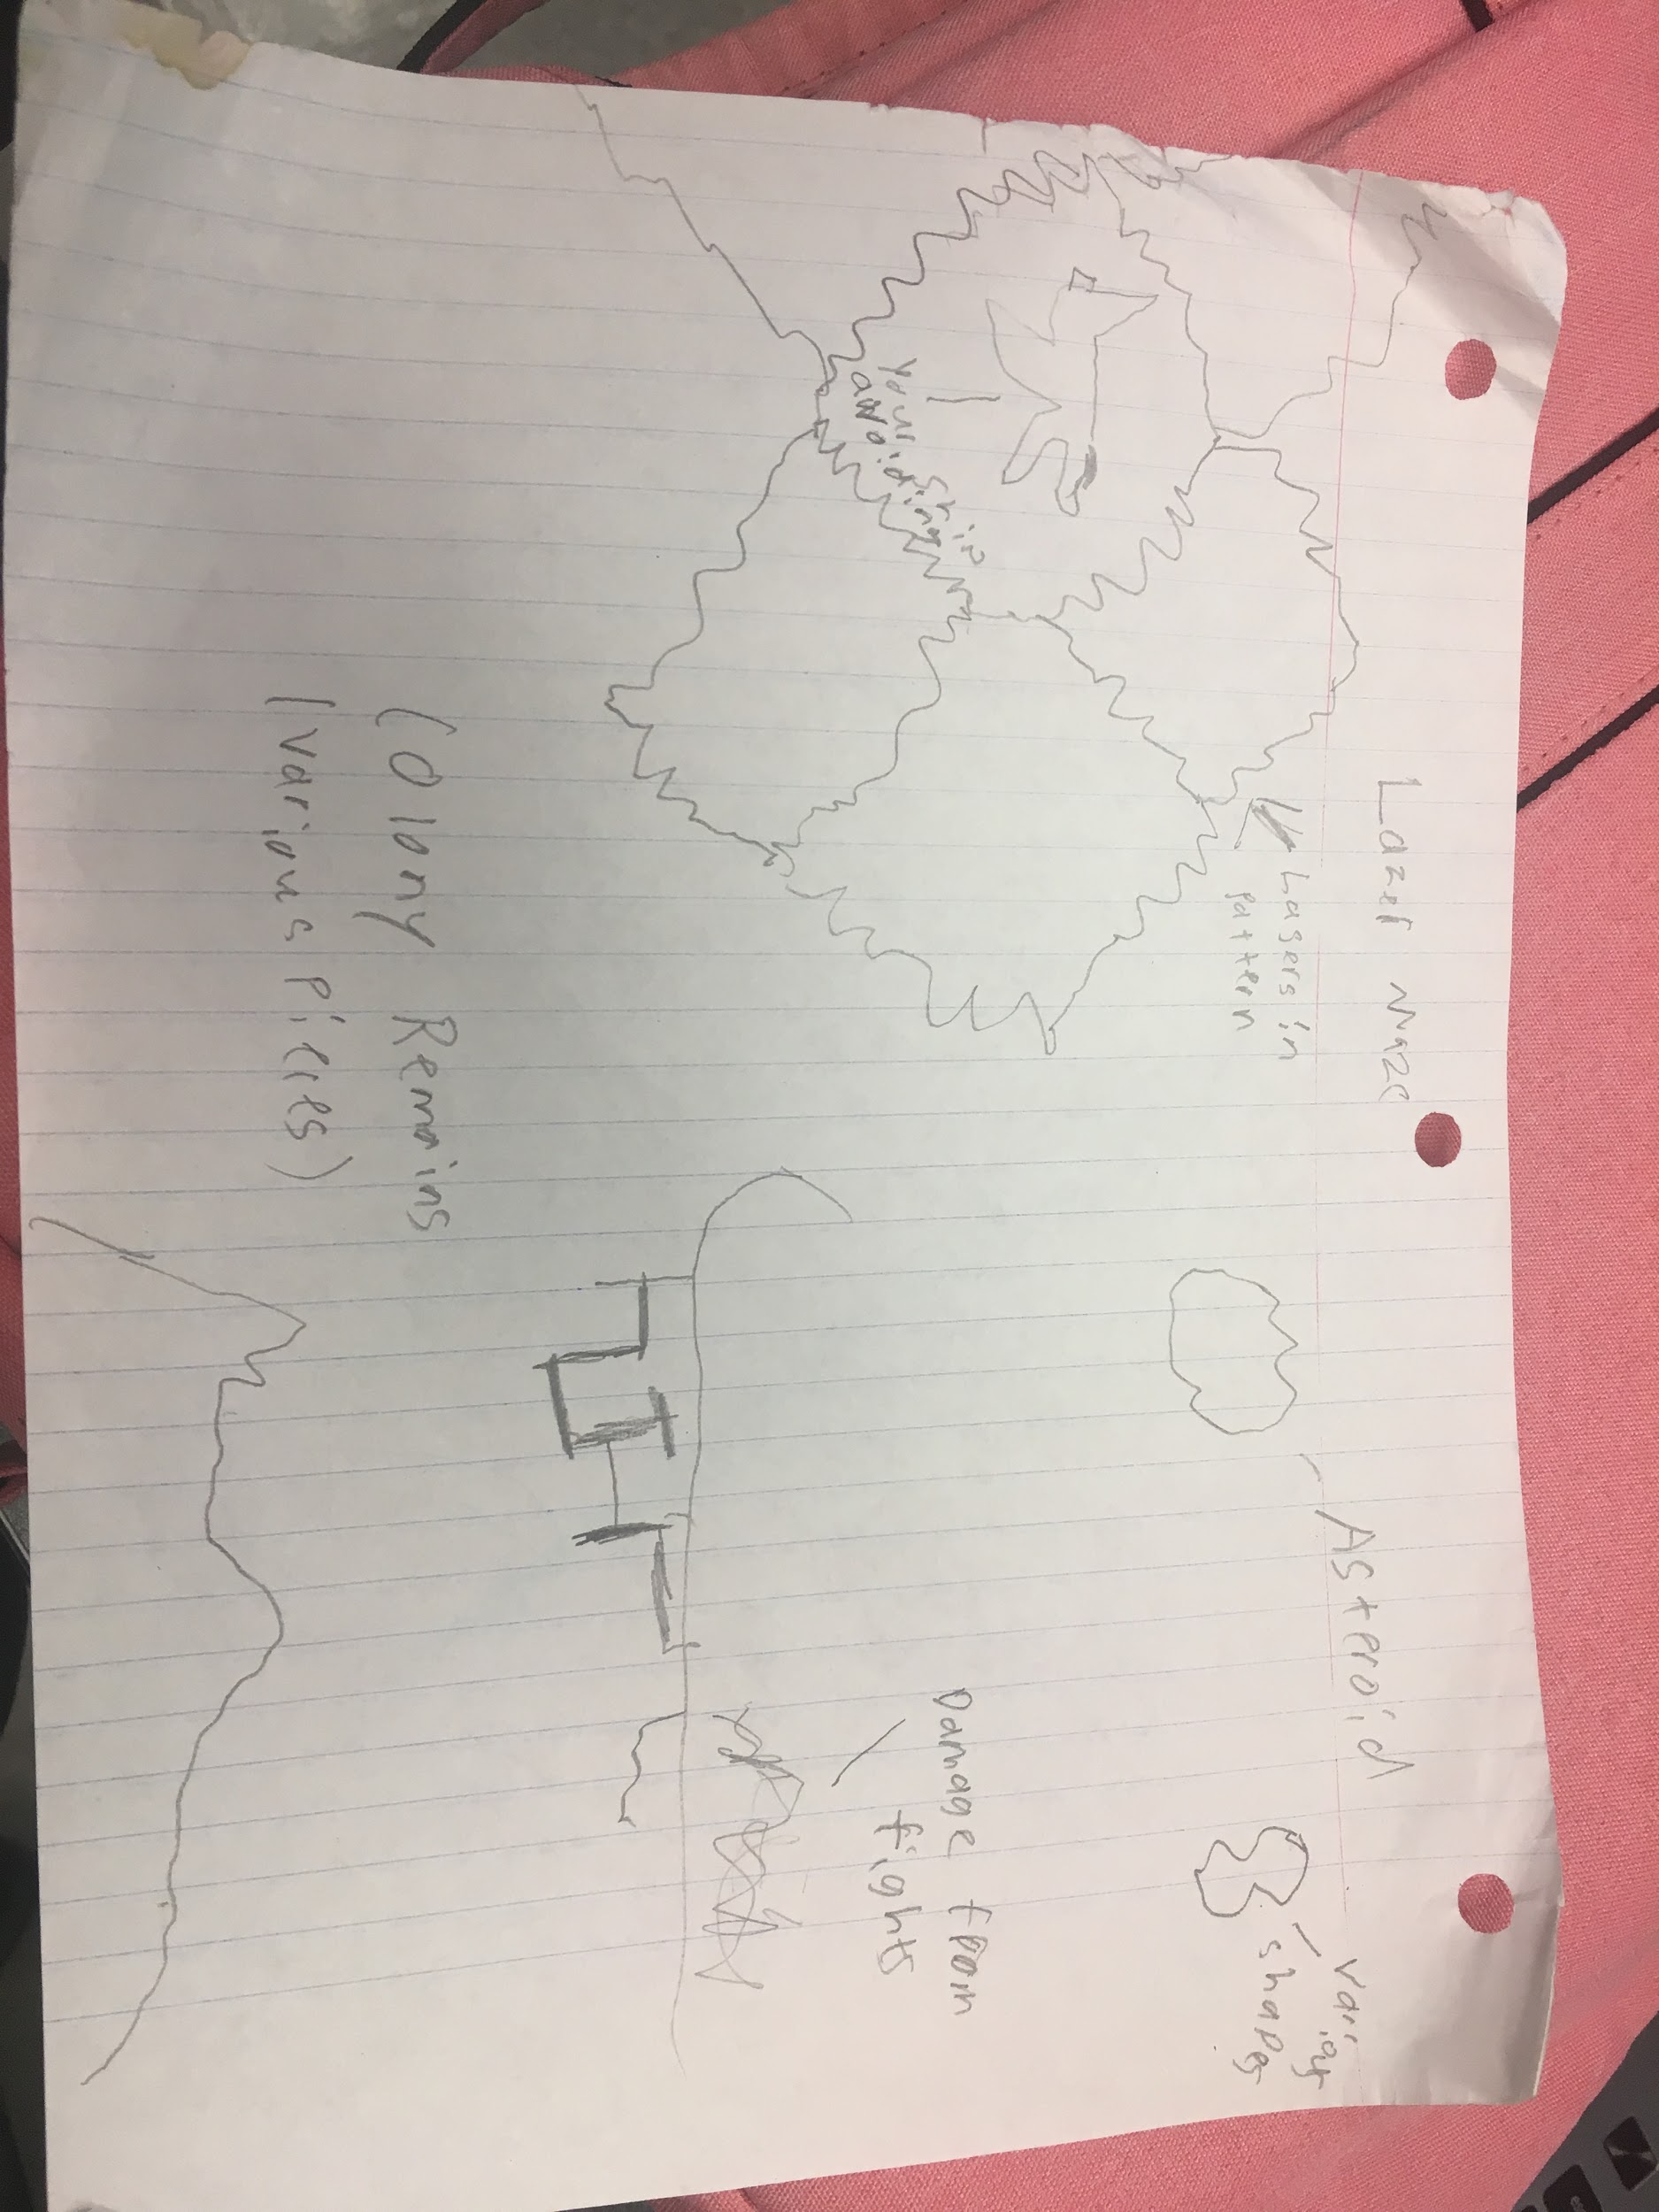 Lazer maze
Lasers in
pattern
Your ship
avoiding
Asteroid
various
shapes
Damage from
fights
Colony Remains
(various Pieces)